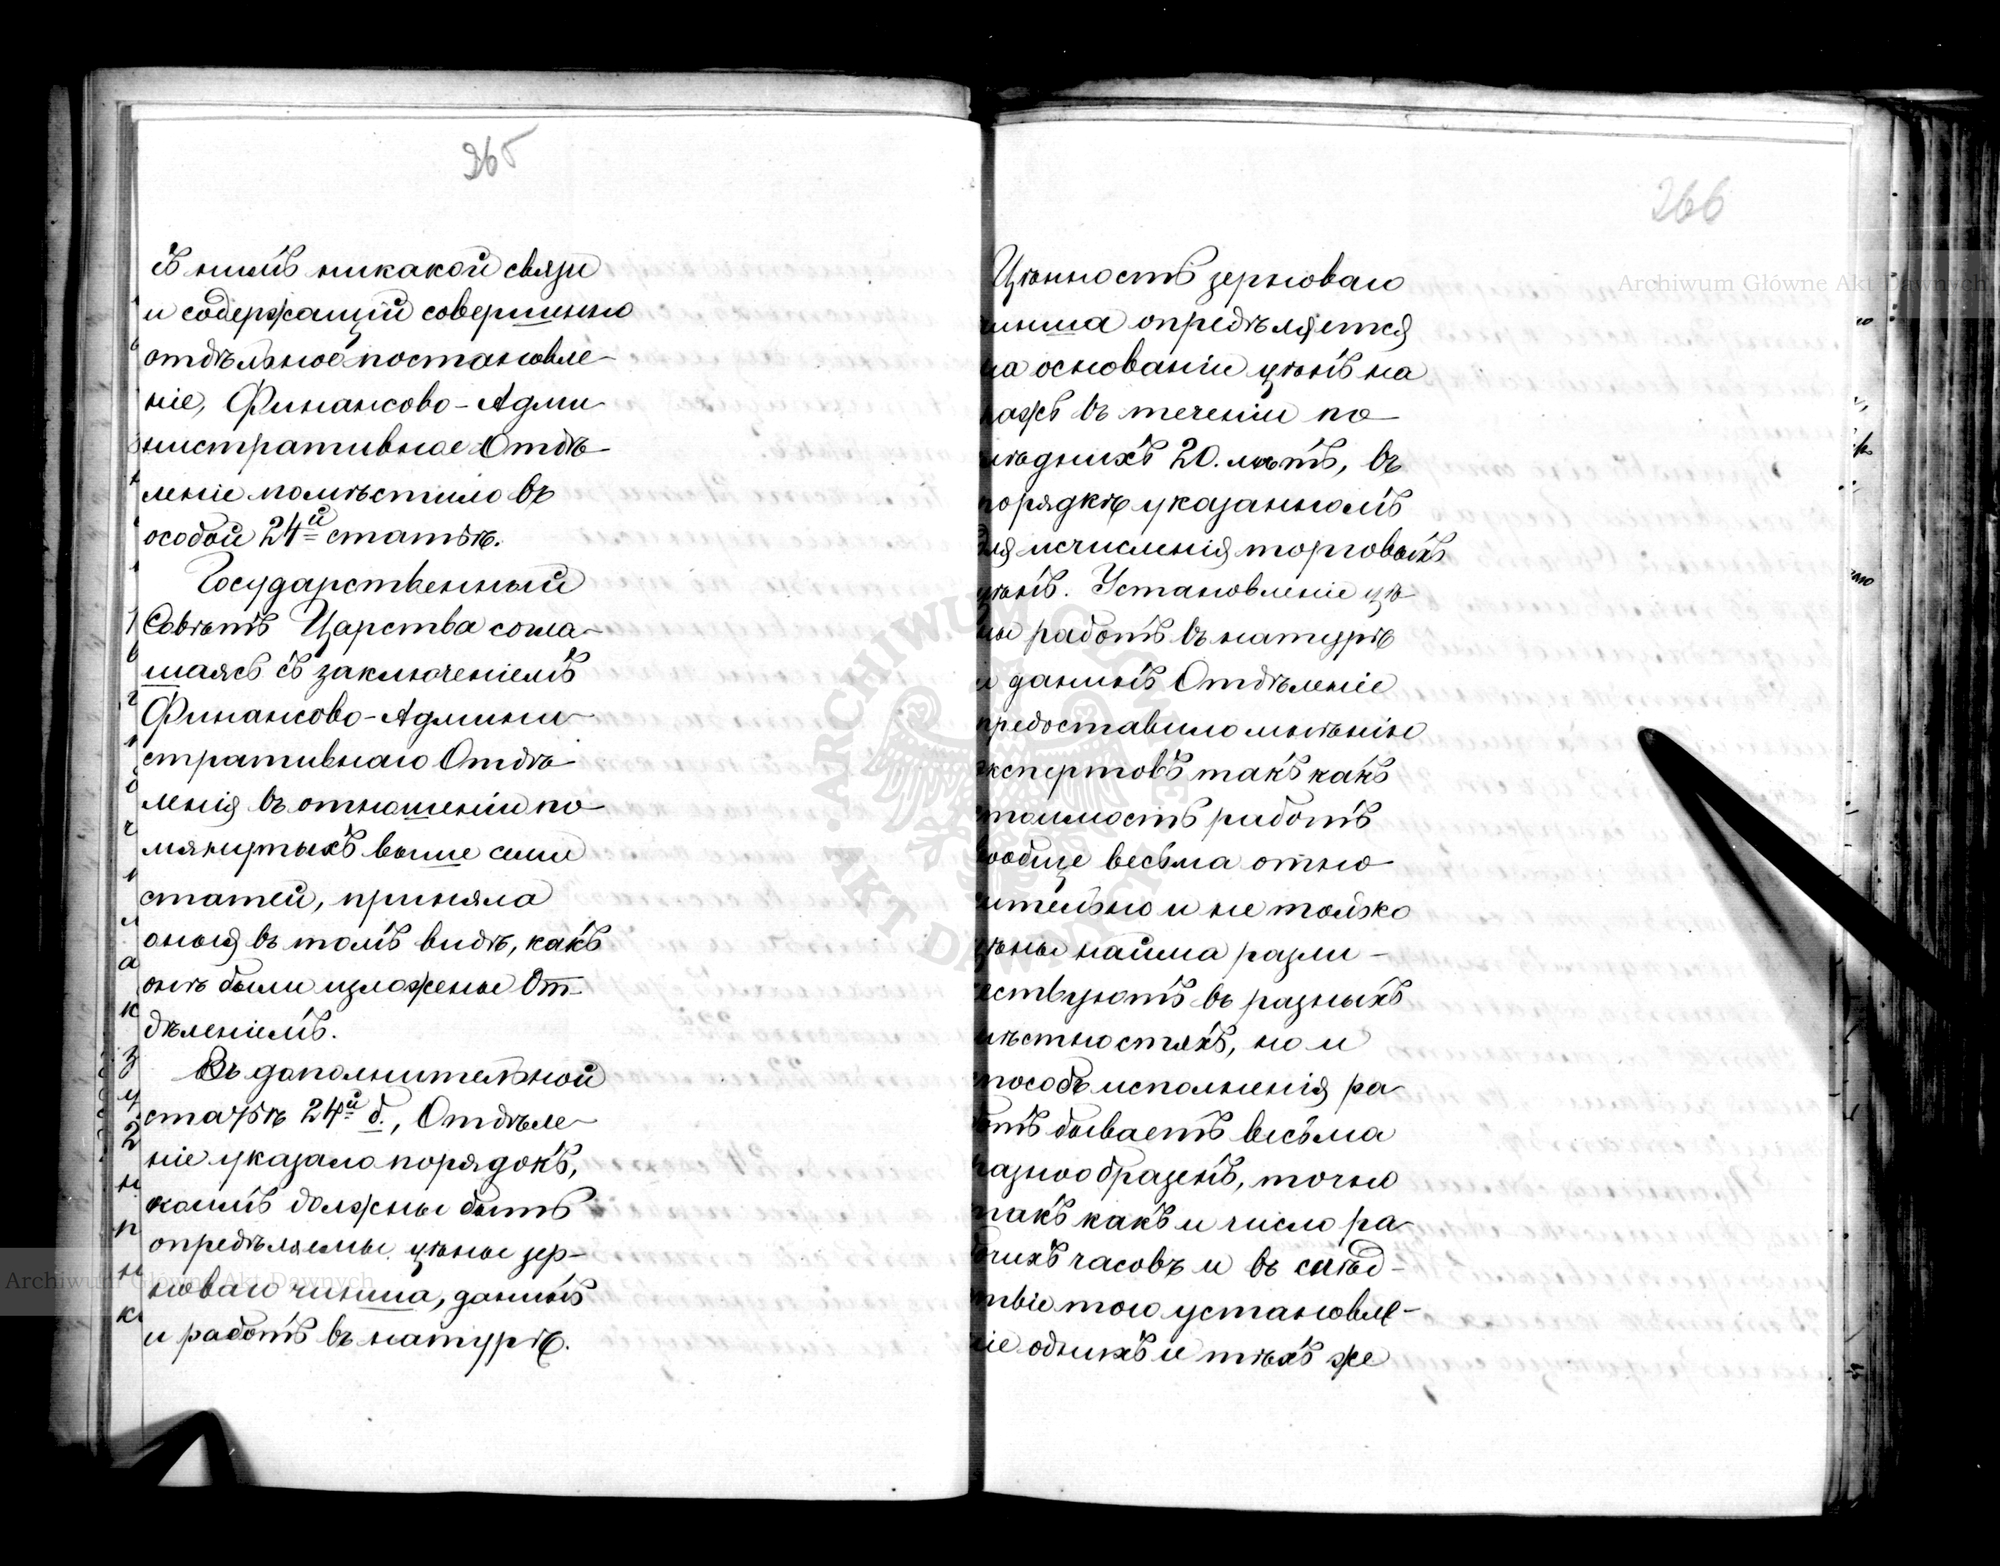 265
съ нимъ никакой связи
и содержащій совершенно
отдѣльное постановле-
ніе, Финансово-Адми-
нистративное Отдѣ-
леніе помѣстило въ
особой 24й статьѣ.
Государственный
Совѣтъ Царства согла-
шаясь съ заключеніемъ
Финансово-Админи-
стративнаго Отдѣ-
ленія въ отношеніи по-
мянутыхъ выше семи
статей, приняла
оныя въ томъ видѣ, какъ
онѣ были изложены От-
дѣленіемъ.
Въ дополнительной
статьѣ 24й б., Отдѣле-
ніе указало порядокъ,
коимъ должны быть
опредѣляемы цѣны зер-
новаго чинша, данинъ
и работъ въ натурѣ.
266
Цѣнность зерноваго
чинша опредѣляется
на основаніи цѣнъ на
въ теченіи по-
слѣднихъ 20. лѣтъ, въ
порядкѣ указанномъ
для исчисленія торговыхъ
цѣнъ. Установленіе цѣ-
ны работъ въ натурѣ
и данинъ Отдѣленіе
предоставило мнѣнію
экспертовъ такъ какъ
стоимость работъ
вообще весьма отно-
сительно и не только
цѣны найма разли-
чествуютъ въ разныхъ
мѣстностяхъ, но и
способъ исполненія ра-
ботъ бываетъ весьма
разнообразенъ, точно
такъ какъ и число ра-
бочихъ часовъ и въ слѣд-
ствіе того установле-
ніе однихъ и тѣхъ же
Archiwum Główne Akt Dawnych
Archiwum Główne Akt Dawnych
ARCHIWUM GŁÓWNE AKT DAWNYCH